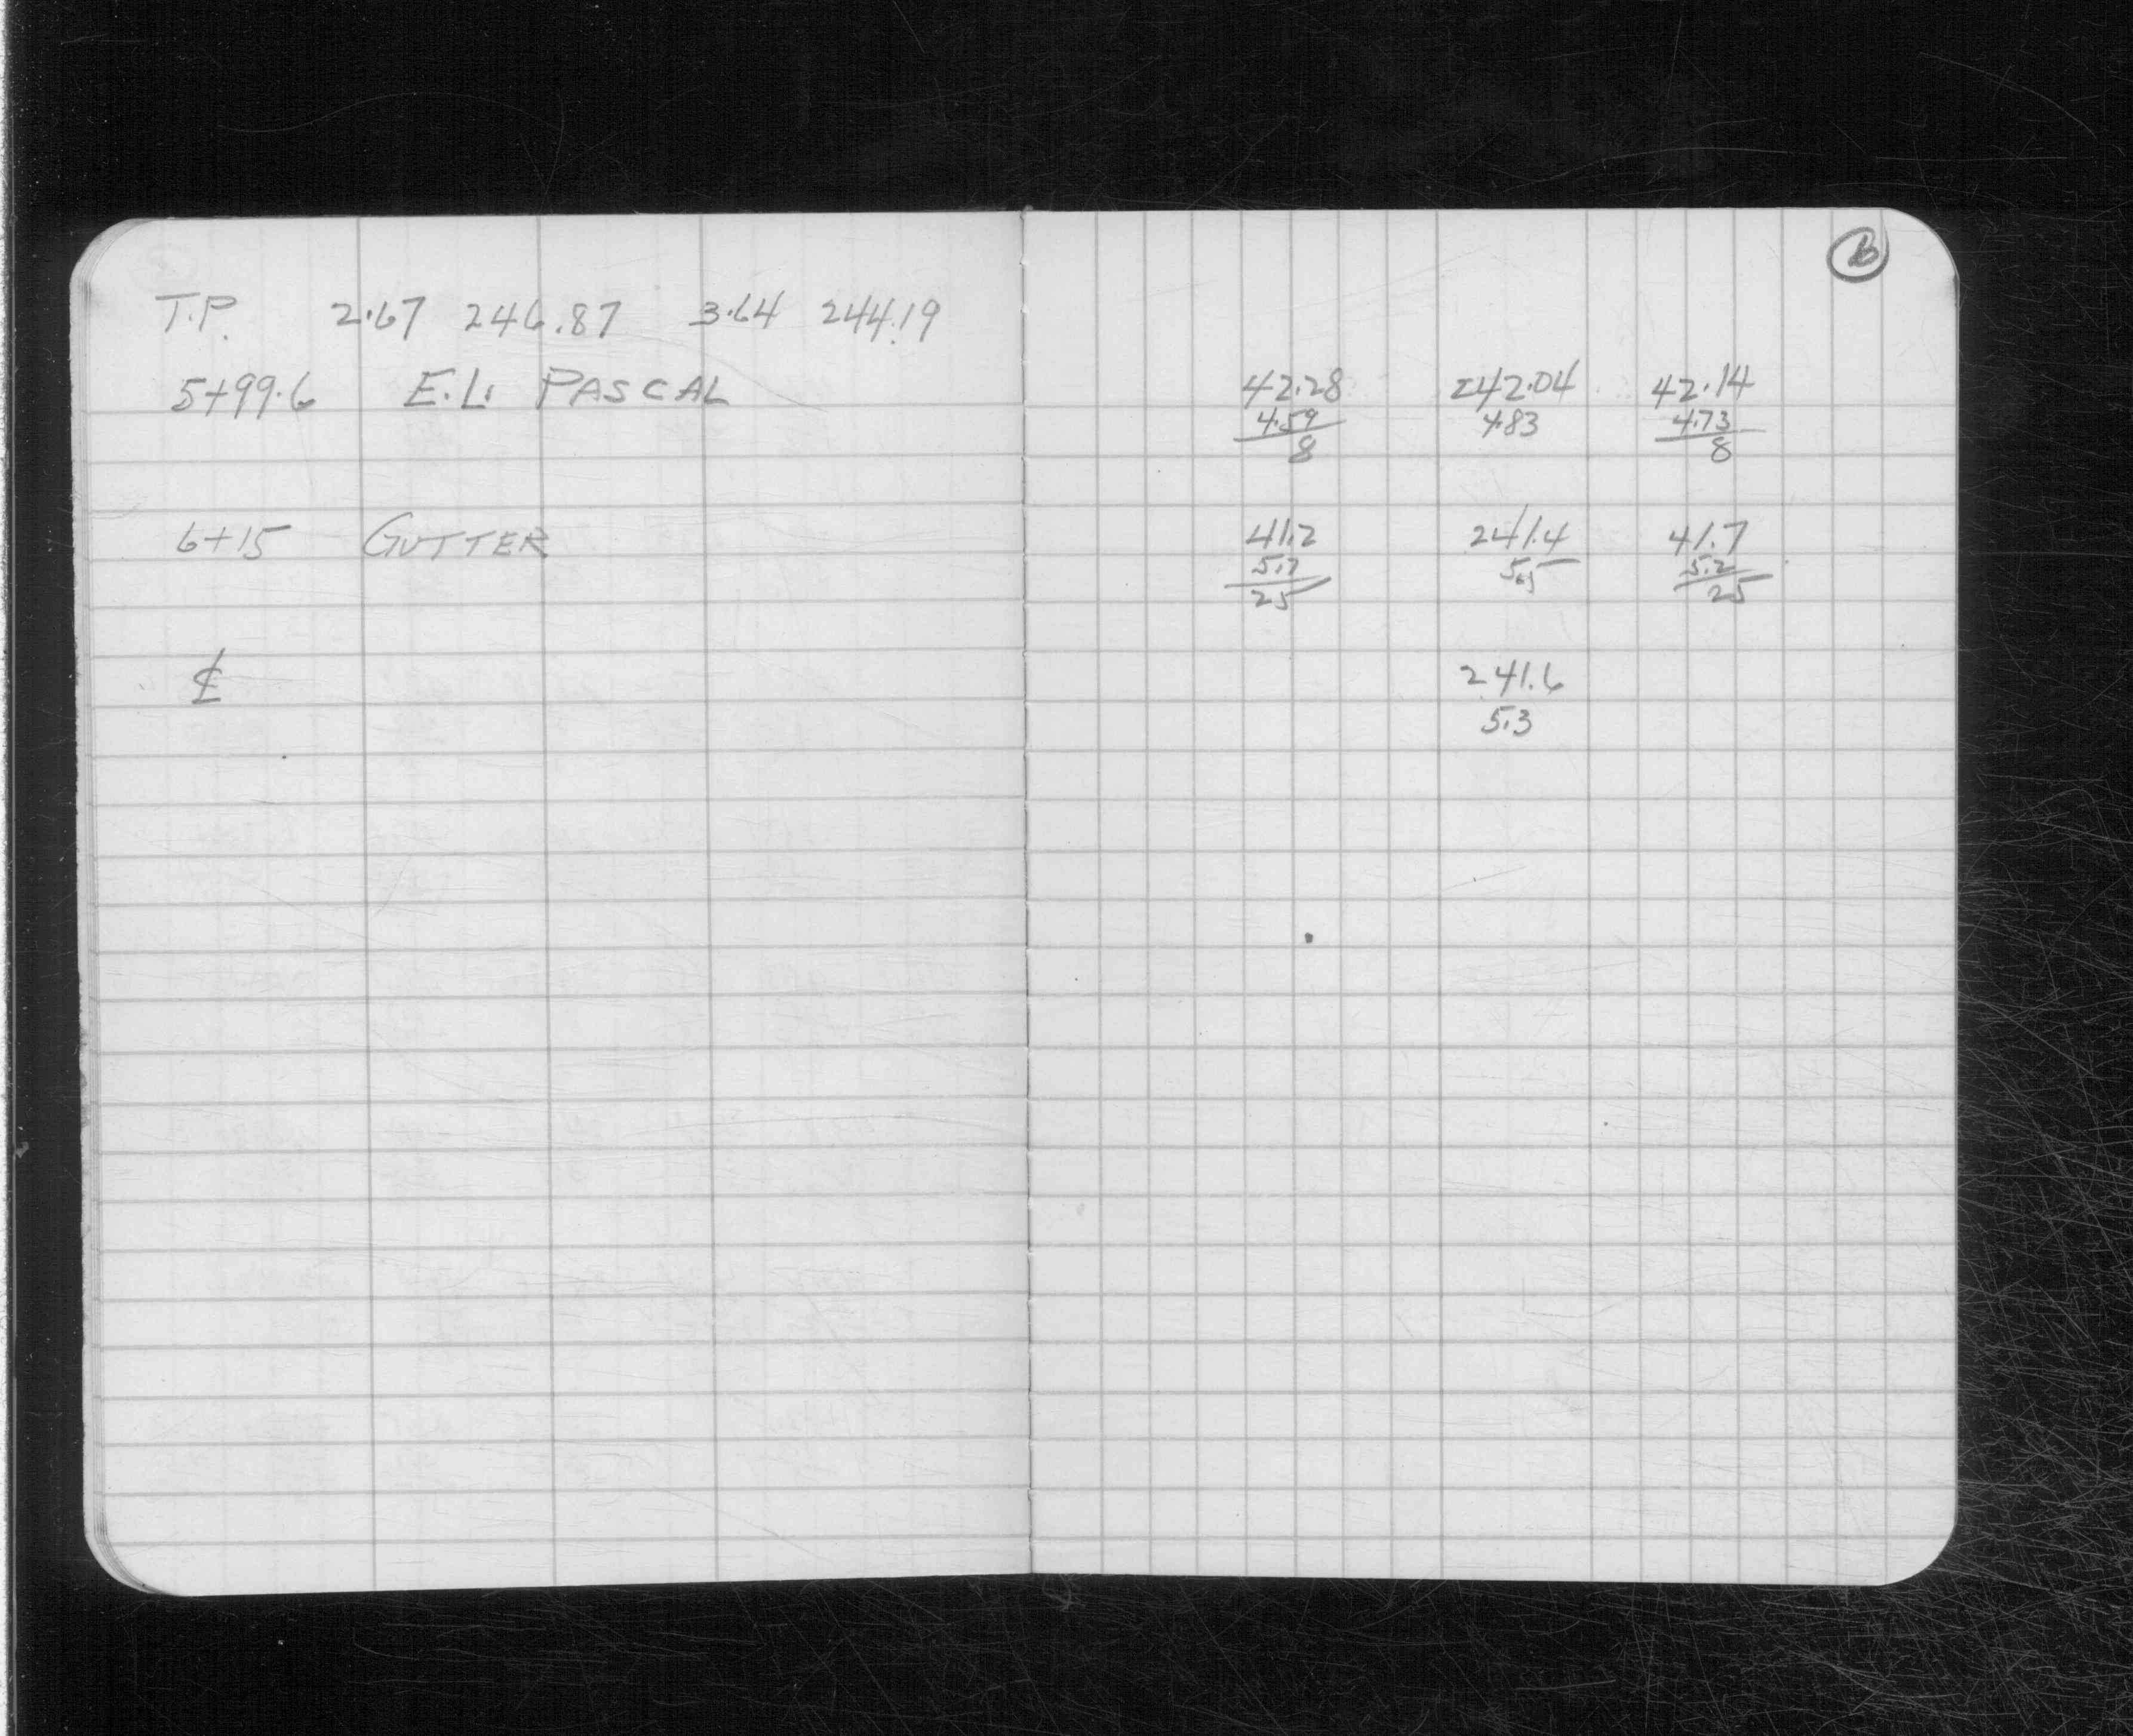 T.P. 2.67 246.87 3.64 244.19
5+99.6 E.L. PASCAL 42.28 242.04 42.14
4.59 4.83 4.73
8 8
6+15 GUTTER 41.2 241.4 41.7
5.7 5.2
25 25
℄ 241.6
5.3